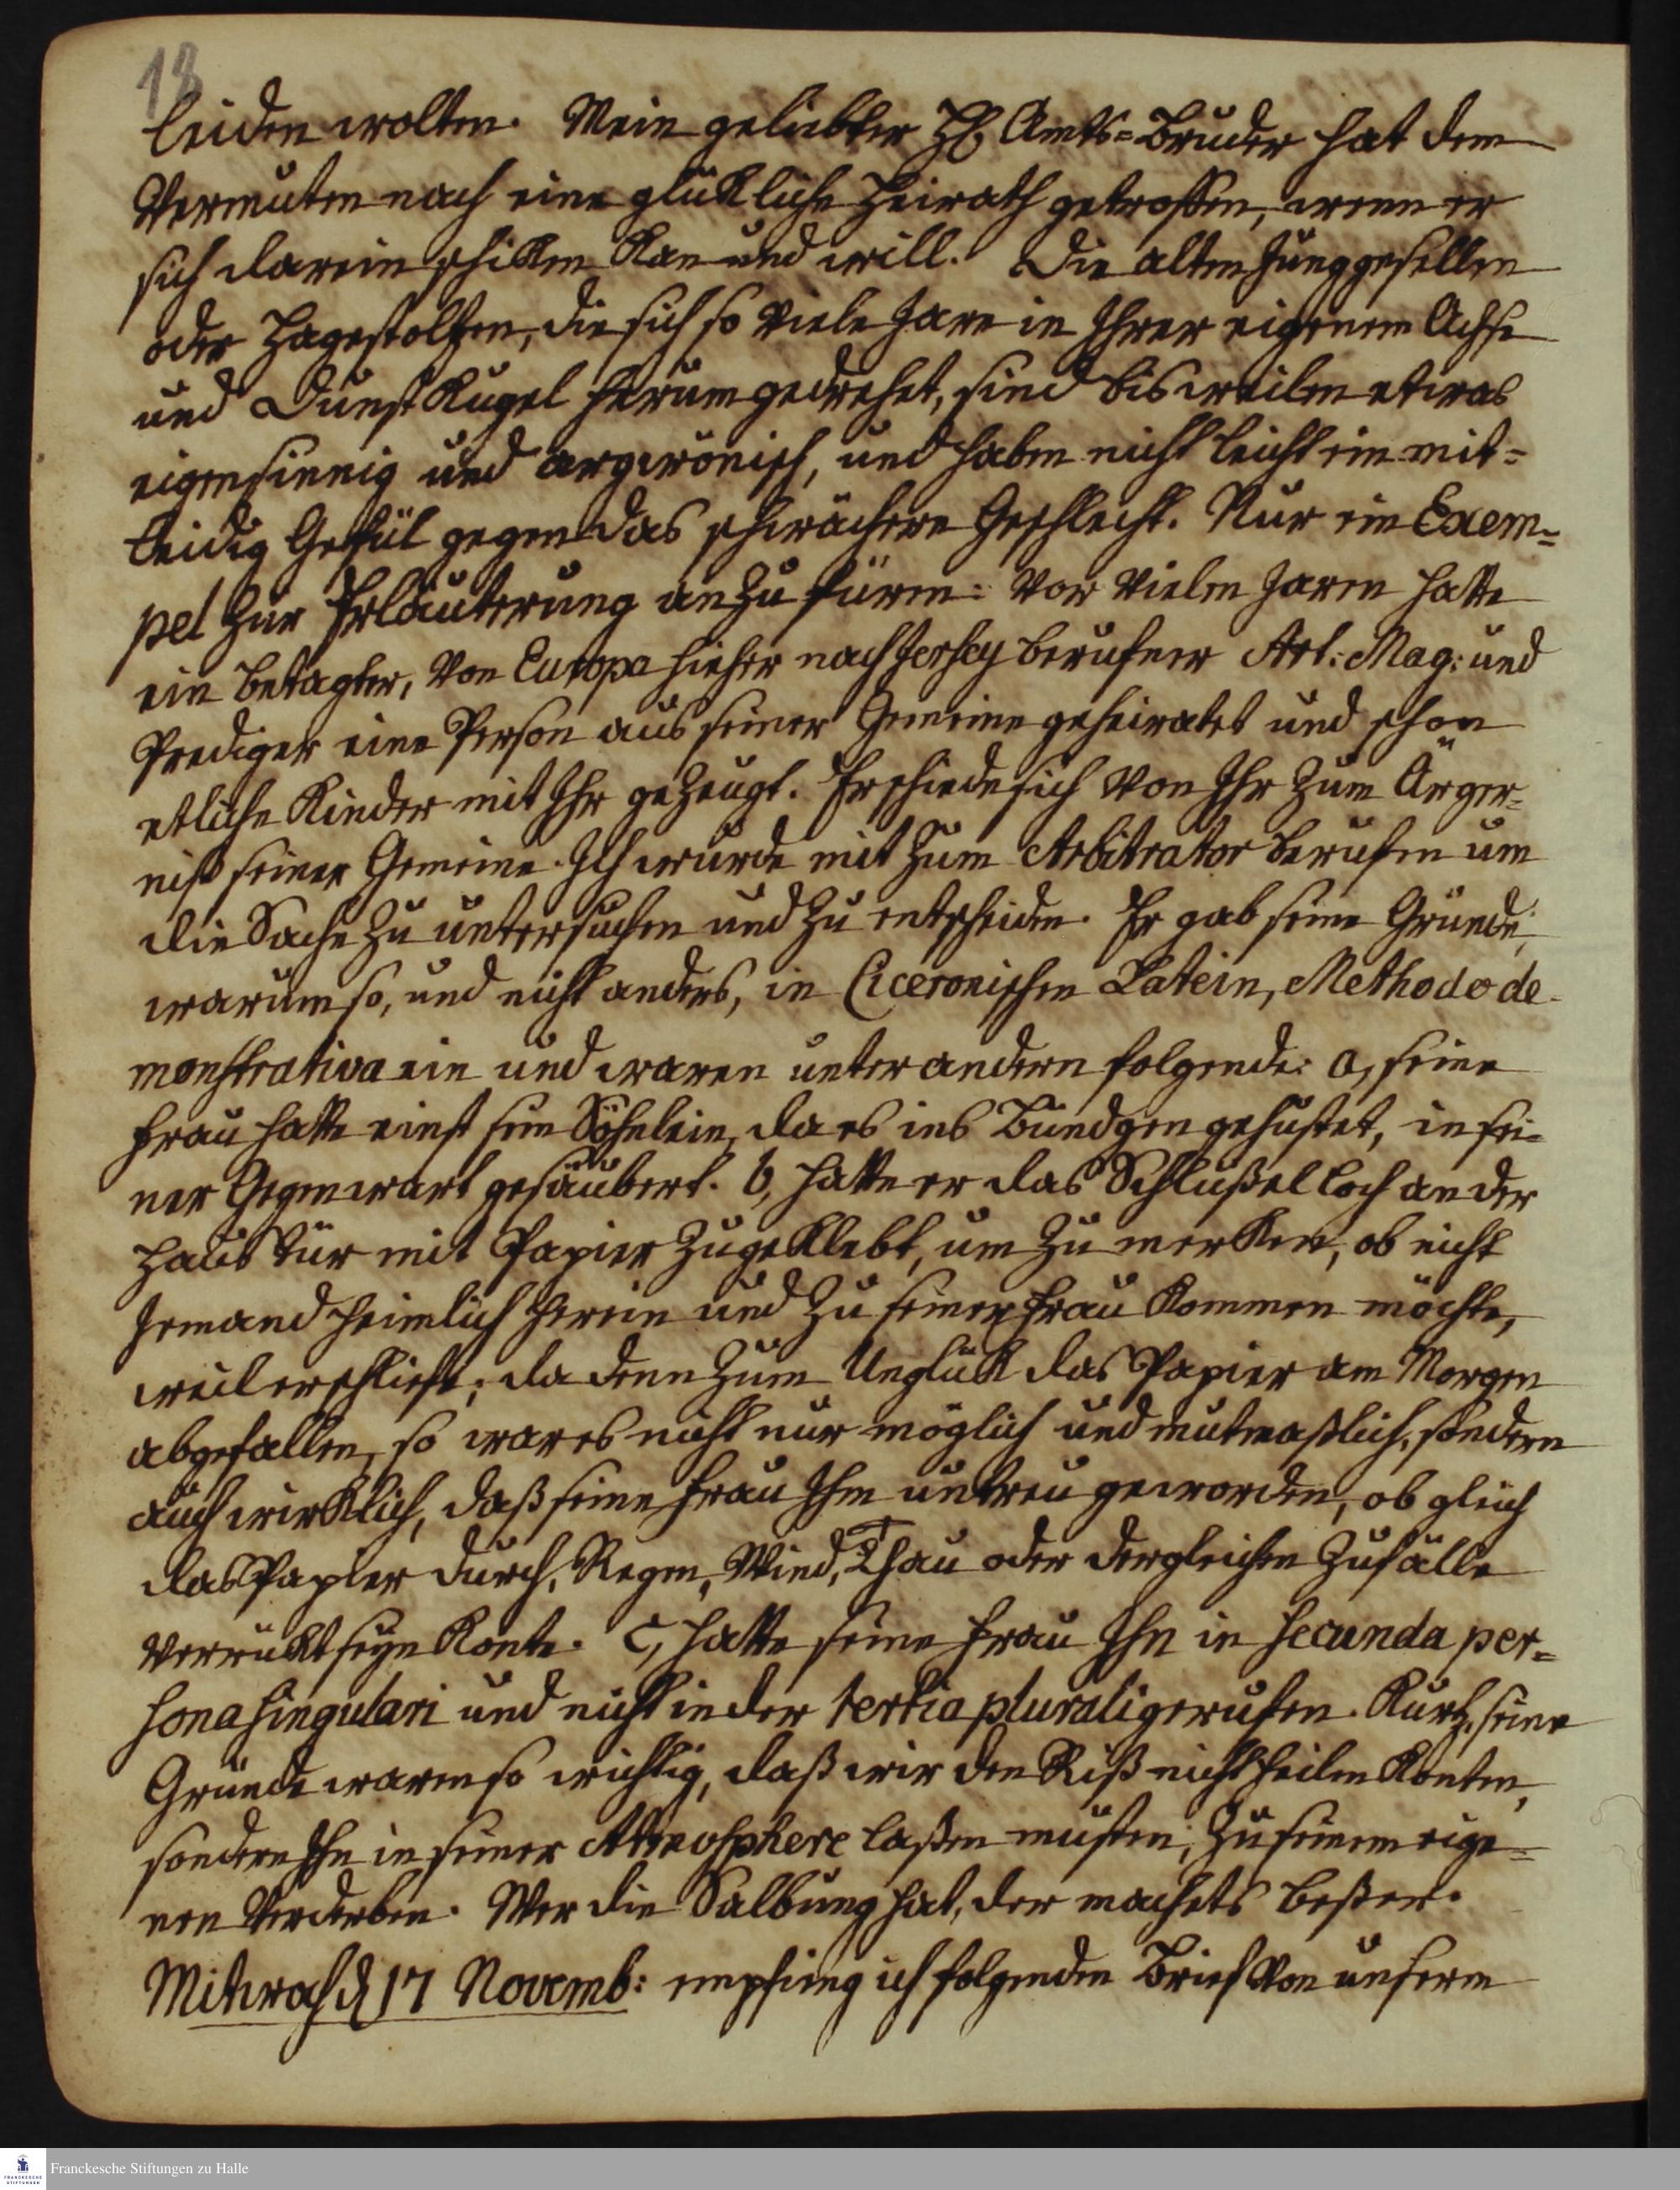 18
leiden wolten. Mein geliebter H. Amts-Bruder hat dem
Vermuten nach eine glükliche Heirath getroffen, wenn er
sich darein schiken kan und will. Die alten Junggesellen
oder Hagestoltzen, die sich so viele Jare in Ihrer eigenen Achse
und Dunst Kugel herum gedrehet, sind bisweilen etwas
eigensinnig und argwönisch, und haben nicht leicht ein mit-
leidig Gefül gegen das schwächere Geschlecht. Nur ein Exem-
pel zur Erläuterung anzufüren: Vor vielen Jaren hatte
ein betagter, von Europa hieher nach Jersey berufner Art: Mag: und
Prediger eine Person aus seiner Gemeine geheiratet und schon
etliche Kinder mit Ihr gezeugt. Er schiede sich von Ihr zum Ärger-
niß seiner Gemeine. Ich wurde mit zum Arbitrator berufen um
die Sache zu untersuchen und zu entscheiden. Er gab seine Gründe,
warum so, und nicht anders, in Ciceronischen Latein, Methodo de-
monstrativa ein und waren unter andern folgende: a, seine
Frau hatte einst sein Söhnlein, da es ins Bündgen gehustet, in sei-
ner Gegenwart gesäubert. b, hatte er das Schlüßelloch an der
Haus Tür mit Papier zugeklebt, um zu merken, ob nicht
Jemand heimlich herein und zu seiner Frau kommen möchte,
weil er schliefe; da denn zum Unglük das Papier am Morgen
abgefallen, so war es nicht nur möglich und mutmaßlich, sondern
auch wirklich, daß seine Frau Ihm untreu geworden, ob gleich
das Papier durch, Regen, Wind, Thau oder dergleichen Zufälle
verrükt seyn konte. c, hatte seine Frau Ihn in secunda per-
sona singulari und nicht in der tertia plurali gerufen. Kurtz, seine
Gründe waren so wichtig, daß wir den Riß nicht heilen konten,
sondern Ihn in seiner Atmosphere laßen müsten, zu seinem eige-
nen Verderben. Wer die Salbung hat, der machets beßer.
Mitwoch d 17 Novemb: empfieng ich folgenden Brief von unserm
Franckesche Stiftungen zu Halle
FRANCKESCHE
STIFTUNGEN